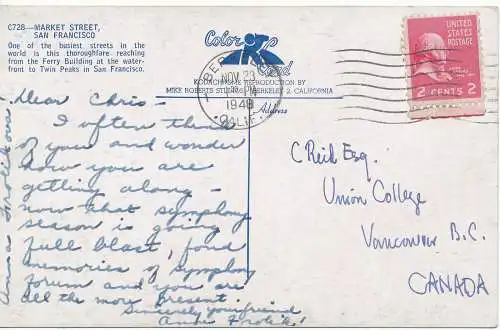 C728—MARKET STREET,
SAN FRANCISCO
One of the busiest streets in the
world is this thoroughfare reaching
from the Ferry Building at the water-
front to Twin Peaks in San Francisco.
Color Card
KODACHROME REPRODUCTION BY
MIKE ROBERTS STUDIOS, BERKELEY 2, CALIFORNIA
Address
NOV 23
PM
1948
CALIF.
UNITED
STATES
POSTAGE
2 CENTS 2
Dear Chris—
I often think
of you and wonder
how you are
getting along—
now that symphony
season is going
full blast, fond
memories of symphony
forum and you are
all the more present.
Sincerely your friend
Anna Frolik!
Anna Frolik
C Reid Esq.
Union College
Vancouver B.C.
CANADA